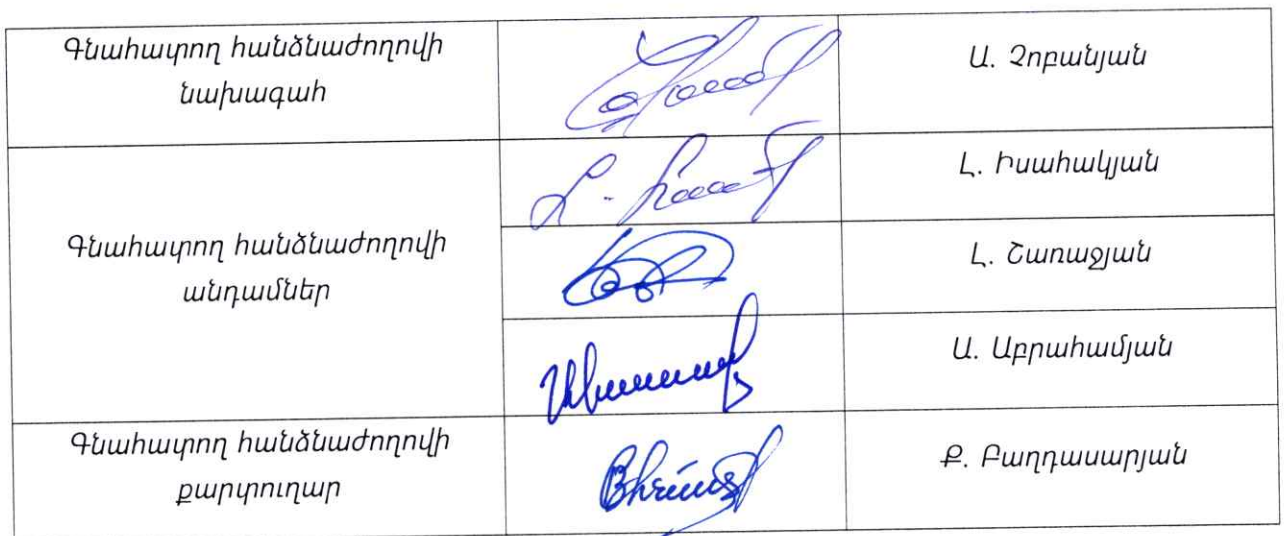 Գնահատող հանձնաժողովի
նախագահ
Ա. Չոբանյան
Լ. Իսահակյան
Գնահատող հանձնաժողովի
անդամներ
Լ. Շառաջյան
Ա. Աբրահամյան
Գնահատող հանձնաժողովի
քարտուղար
Ք. Բաղդասարյան